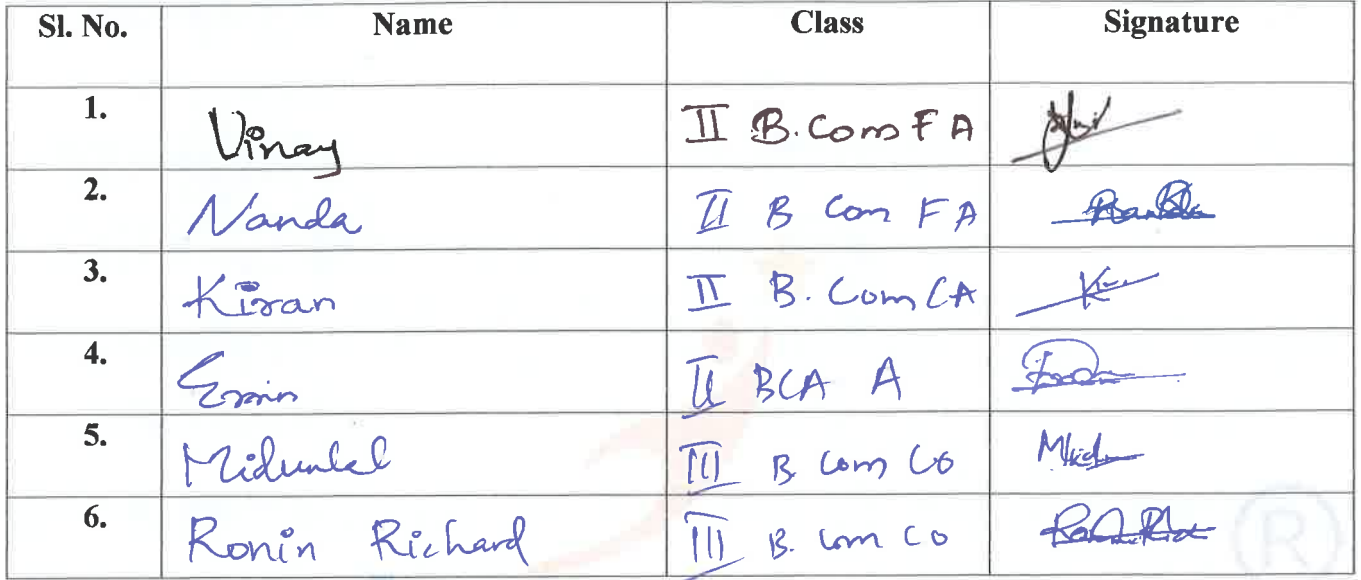 Sl. No. Name Class Signature
1. Vinay II B.Com F A
2. Nanda II B Com F A
3. Kiran II B. Com CA
4. II BCA A
5. Midunlal III B Com Co
6. Ronin Richard III B. Com Co
R